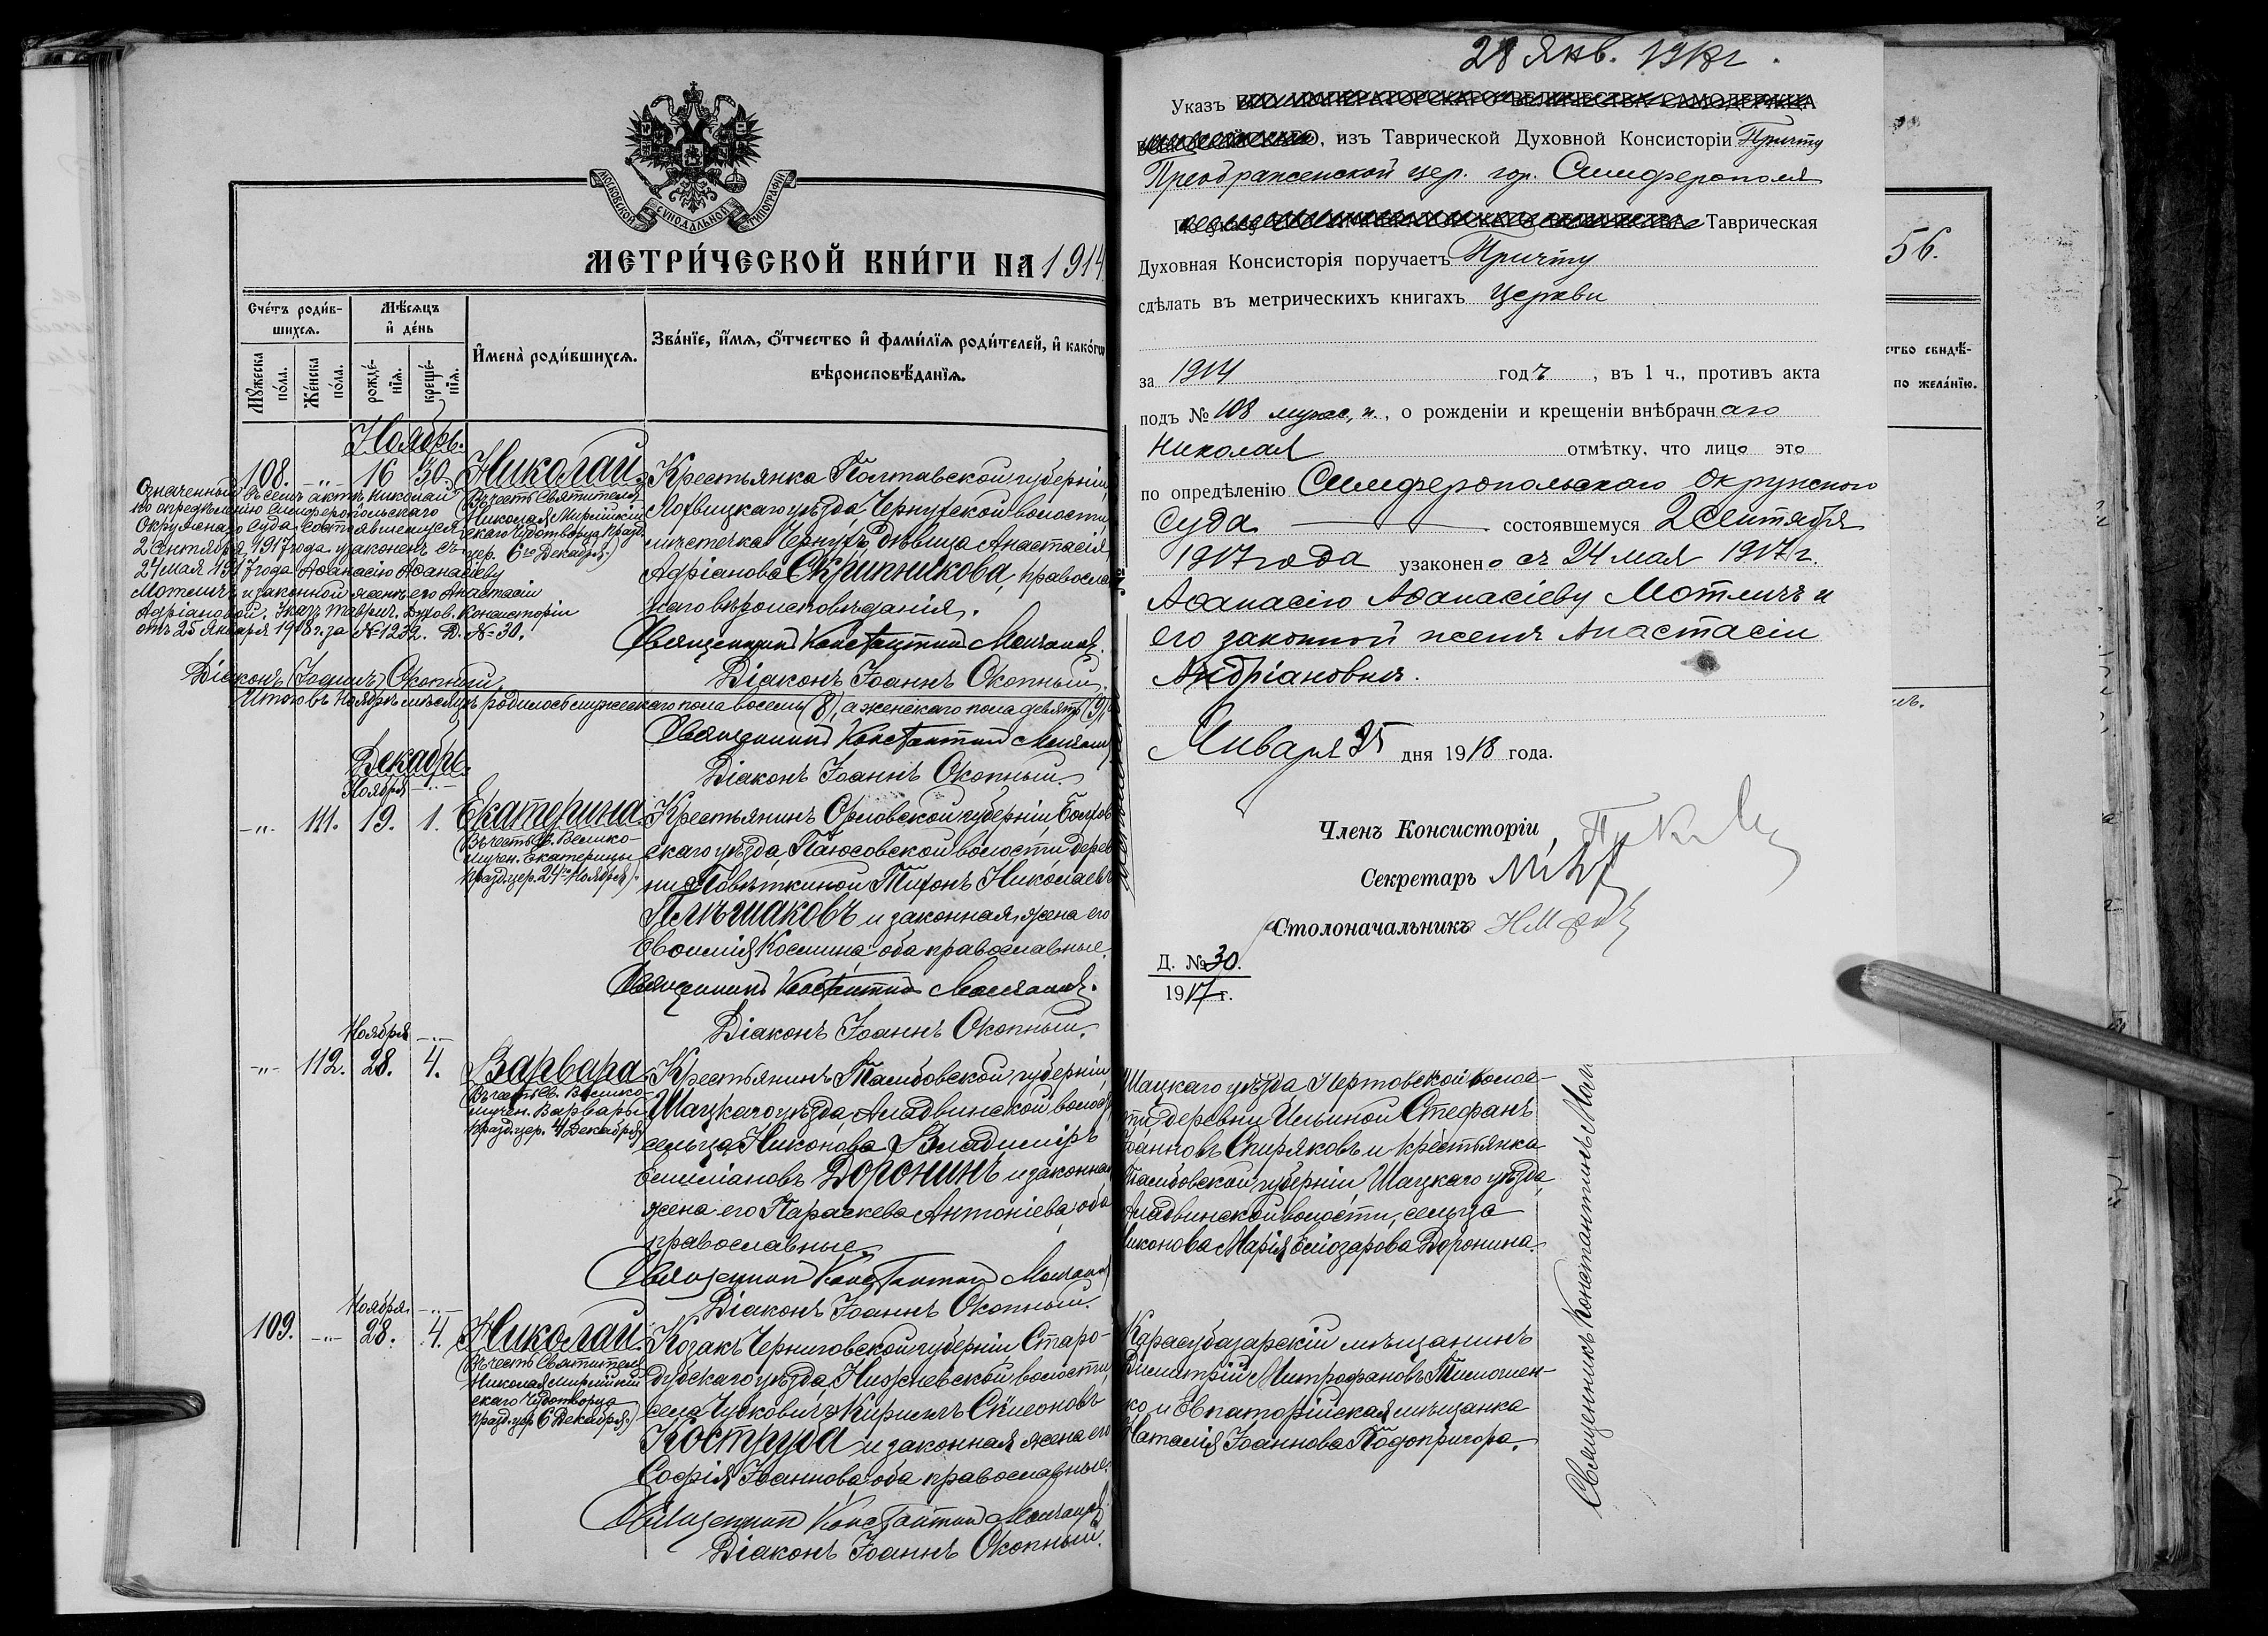 МОСКОВСКОЙ СѶНОДАЛЬНОЙ ТИПОГРАФІИ
МЕТРИ́ЧЕСКОЙ КНИ́ГИ НА 1914
Сче́тъ роди́в-
шихсѧ.
Мѣ́сѧцъ
и҆ де́нь
Мꙋ́жеска
по́ла.
Же́нска
по́ла.
рожде́-
нїѧ.
креще́-
нїѧ.
И҆мена̀ роди́вшихсѧ.
Зва́нїе, и҆́мѧ, ѻ҆́тчество и҆ фами́лїѧ роди́телей, и҆ како́гѡ
вѣроисповѣ́данїѧ.
Ноябрь.
108. -„- 16 30. Николай
(Въ честь Святителя
Николая Мирликій-
скаго Чудотворца празд.
цер. 6го Декабря.)
Крестьянка Полтавской губерніи,
Лохвицкаго уѣзда, Чернухской волости
мѣстечка Чернухъ дѣвица Анастасія
Адріанова Скрипникова, правосла
наго вѣроисповѣданія.
Священникъ Константинъ Молчановъ.
Діаконъ Іоаннъ Окопный.
Означенный въ семъ актѣ Николай
по опредѣленію Симферопольскаго
Окружнаго Суда, состоявшемуся
2 Сентября 1917 года узаконенъ съ
24 мая 1917 года Аѳанасію Аѳанасіеву
Мотличъ и законной женѣ его Анастасіи
Адріановой. Указъ Таврич. Духов. Консисторіи
отъ 25 Января 1918 г. за № 1232. Д. № 30.
Діаконъ Іоаннъ Окопный.
Итого въ Ноябрѣ мѣсяцѣ родилось мужескаго пола восемь (8), а женскаго пола девять (9)
Священникъ Константинъ Молчановъ
Діаконъ Іоаннъ Окопный.
Декабрь.
Ноября -„-
-„- 111. 19. 1. Екатерина
(Въ честь Св. Велико-
мучен. Екатерины
празд. цер. 24го Ноября).
Крестьянинъ Орловской губерніи, Болхов
скаго уѣзда, Паюсовской волости дерев
ни Повѣткиной Тихонъ Николаевъ
и законная жена его
Евѳимія Космина, оба православные.
Священникъ Константинъ Молчановъ.
Діаконъ Іоаннъ Окопный.
Ноября -„-
-„- 112. 28. 4. Варвара
(Въ честь Св. Велико-
мучен. Варвары
празд. цер. 4 Декабря)
Крестьянинъ Тамбовской губерніи
Шацкаго уѣзда, волос
сельца Никонова Владиміръ
Емиліановъ Доронинъ и законная
жена его Параскева Антоніева, оба
православные.
Священникъ Константинъ Молчановъ
Діаконъ Іоаннъ Окопный.
Ноября -„-
109. -„- 28. 4. Николай.
(Въ честь Святителя
Николая Мирликій-
скаго Чудотворца
празд. цер. 6 Декабря)
Козакъ Черниговской губерніи Старо-
дубскаго уѣзда, волости
села Чубковичъ Кириллъ Сѵмеоновъ
Коструба и законная жена его
Софія Іоаннова, оба православные.
Священникъ Константинъ Молчановъ
Діаконъ Іоаннъ Окопный.
28 Янв. 1918 г.
Указъ ЕГО ИМПЕРАТОРСКАГО ВЕЛИЧЕСТВА САМОДЕРЖЦА
ВСЕРОССІЙСКАГО, изъ Таврической Духовной Консисторіи Причту
Преображенской цер. гор. Симферополя
По указу ЕГО ИМПЕРАТОРСКАГО ВЕЛИЧЕСТВА Таврическая
Духовная Консисторія поручаетъ Причту
сдѣлать въ метрическихъ книгахъ церкви
за 1914 годъ, въ 1 ч., противъ акта
подъ № 108 мужс. п., о рожденіи и крещеніи внѣбрачнаго
Николая отмѣтку, что лицо это
по опредѣленію Симферопольскаго Окружного
Суда состоявшемуся 2 Сентября
1917 года узаконено съ 24 мая 1917 г.
Аѳанасію Аѳанасіеву Мотличъ и
его законной женѣ Анастасіи
Адріановнѣ.
Января 25 дня 1918 года.
Членъ Консисторіи
Секретарь
Столоначальникъ
Д. № 30.
1917 г.
56.
ство свидѣ-
по жела́нїю.
Шацкаго уѣзда волос-
ти, деревни Ильиной Стефанъ
Іоанновъ Спиряковъ и крестьянка
Тамбовской губерніи Шацкаго уѣзда,
волости, сельца
Никонова Марія Доронина.
Карасубазарскій мѣщанинъ
Димитрій Митрофановъ Тимошен-
ко и Евпаторійская мѣщанка
Наталія Іоаннова Подопригора.
Священникъ Константинъ Мол